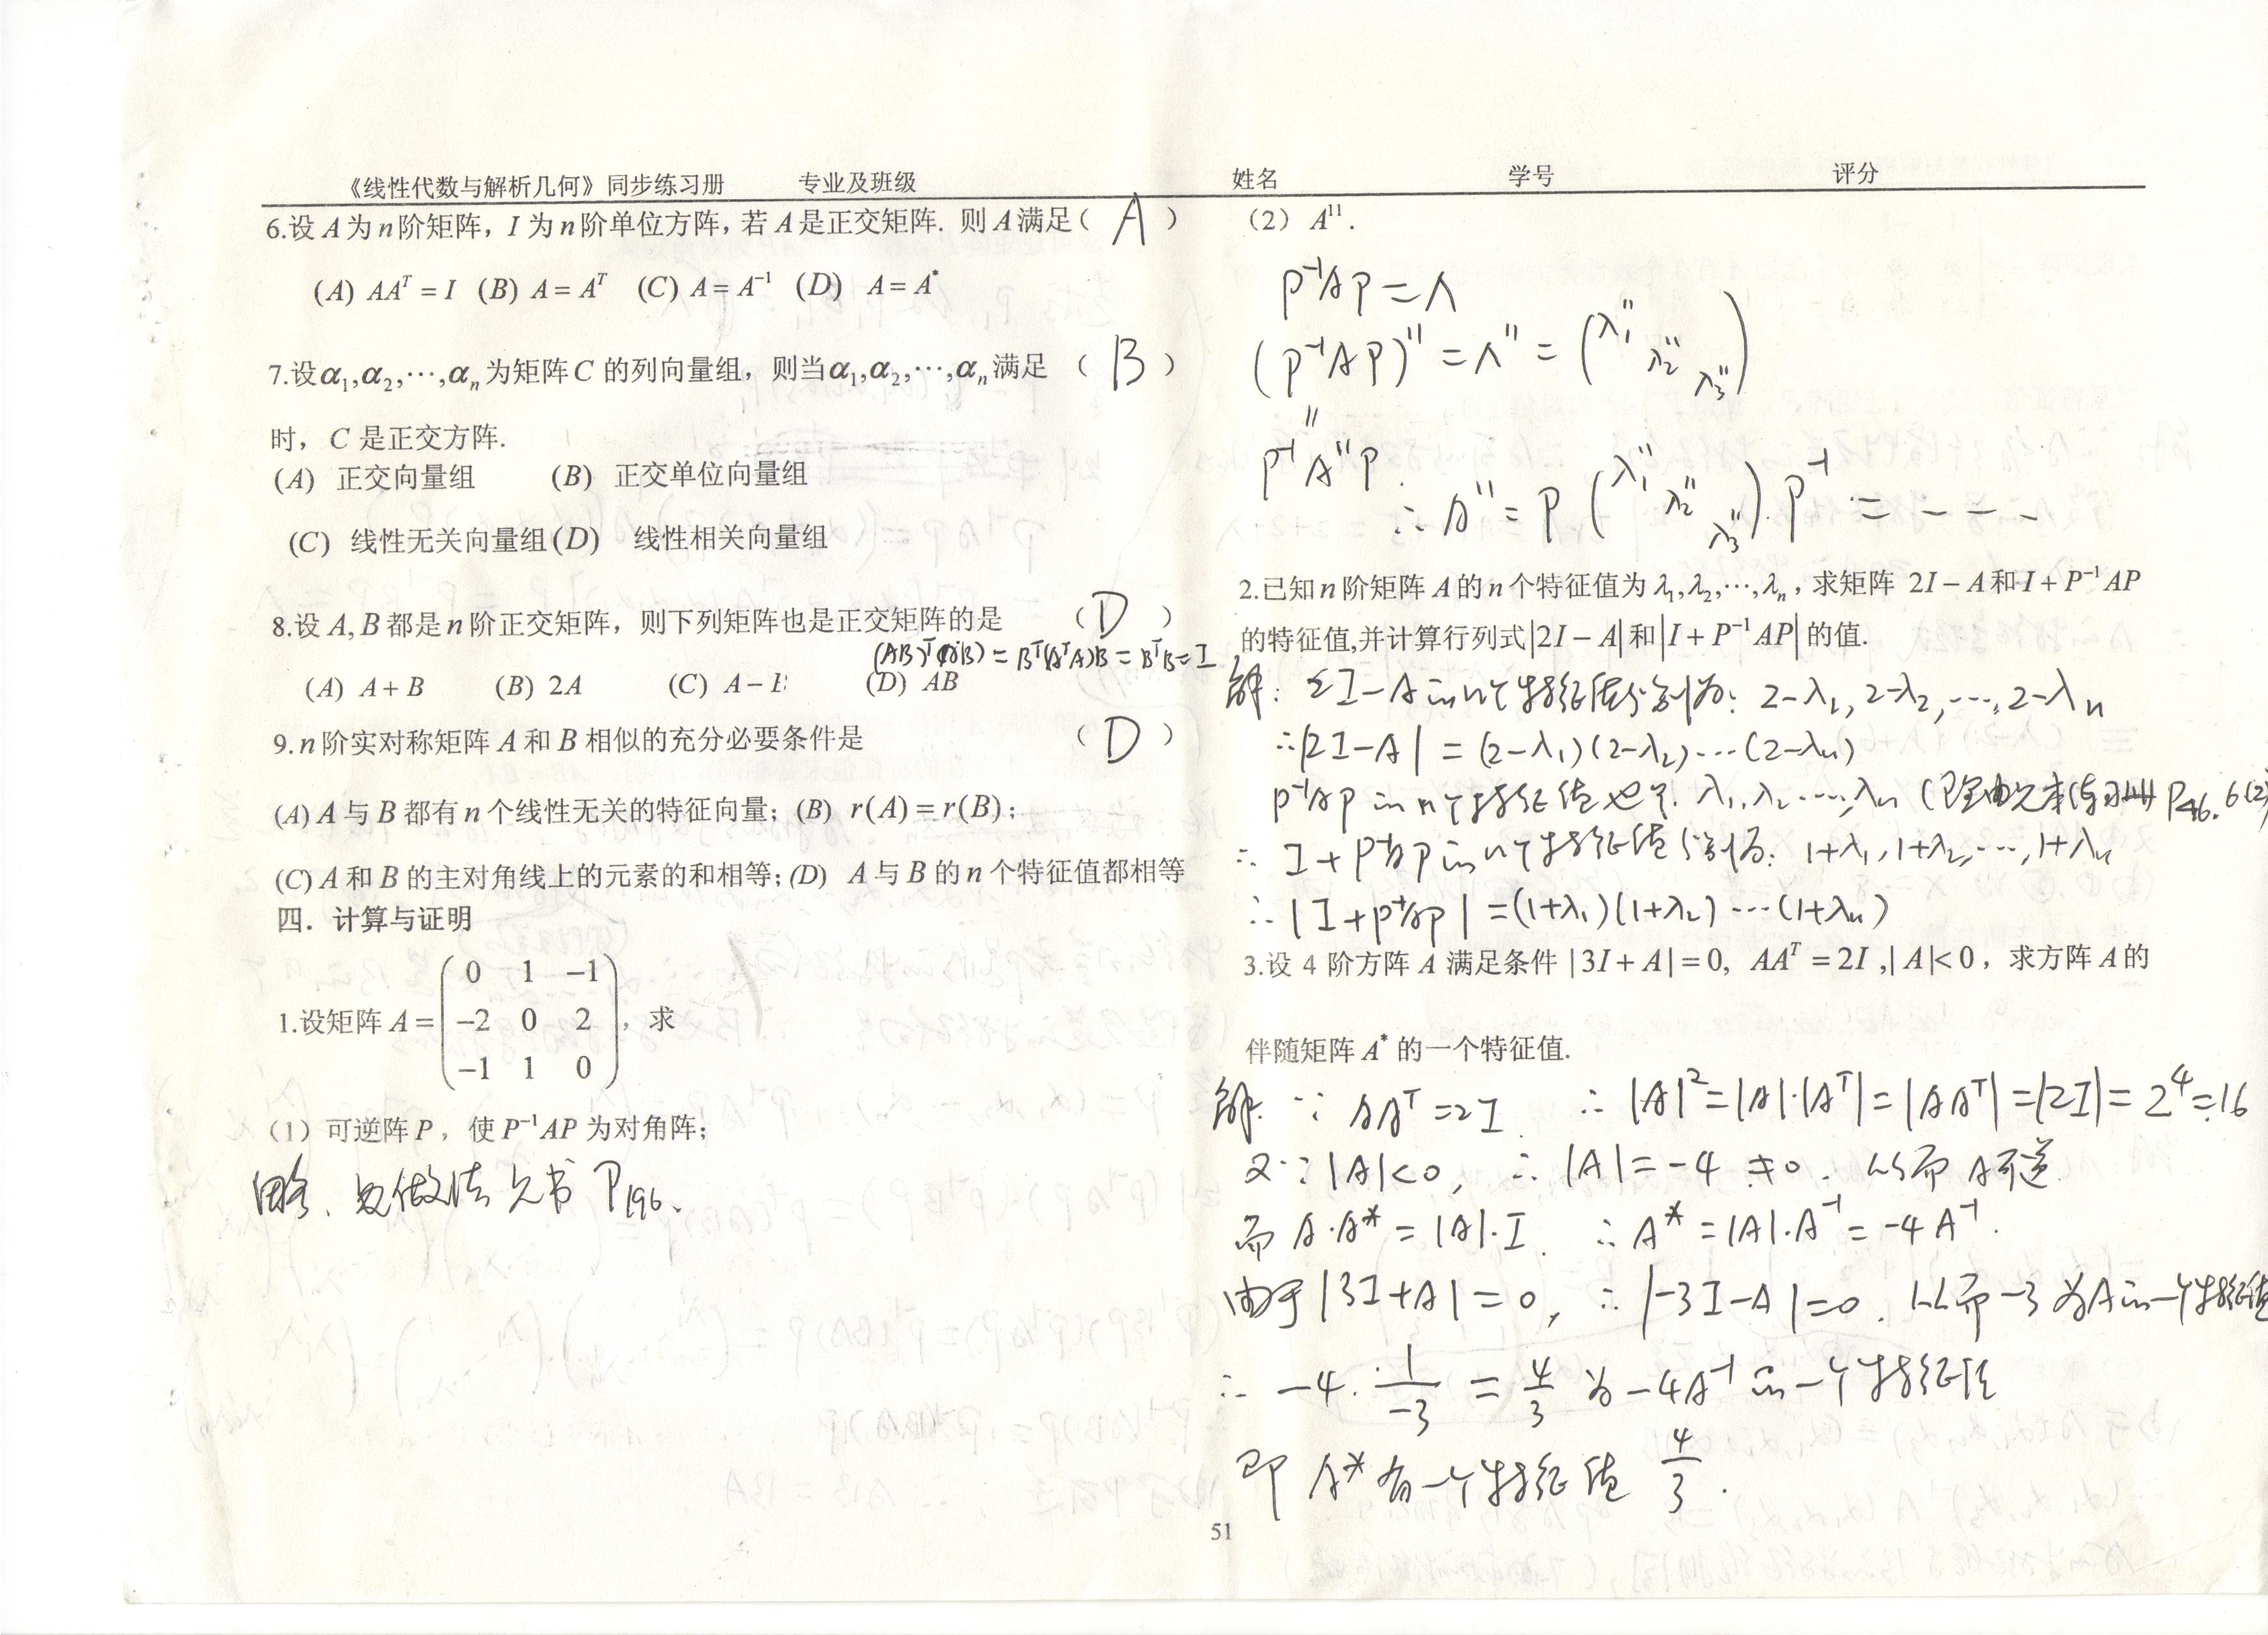 《线性代数与解析几何》同步练习册 专业及班级 姓名 学号 评分
6.设 A 为 n 阶矩阵，I 为 n 阶单位方阵，若 A 是正交矩阵. 则 A 满足（ A ）
(A) AAᵀ = I (B) A = Aᵀ (C) A = A⁻¹ (D) A = A*
7.设 α₁,α₂,⋯,αₙ 为矩阵 C 的列向量组，则当 α₁,α₂,⋯,αₙ 满足 （ B ）
时，C 是正交方阵.
(A) 正交向量组 (B) 正交单位向量组
(C) 线性无关向量组 (D) 线性相关向量组
8.设 A, B 都是 n 阶正交矩阵，则下列矩阵也是正交矩阵的是 （ D ）
(AB)ᵀ(AB) = Bᵀ(AᵀA)B = BᵀB = I
(A) A + B (B) 2A (C) A − B (D) AB
9. n 阶实对称矩阵 A 和 B 相似的充分必要条件是 （ D ）
(A) A 与 B 都有 n 个线性无关的特征向量；(B) r(A) = r(B)；
(C) A 和 B 的主对角线上的元素的和相等；(D) A 与 B 的 n 个特征值都相等
四．计算与证明
0 1 −1
1.设矩阵 A = −2 0 2 ，求
−1 1 0
（1）可逆阵 P，使 P⁻¹AP 为对角阵；
略、做法见书 P196.
（2）A¹¹.
P⁻¹AP = Λ
(P⁻¹AP)¹¹ = Λ¹¹ = (λ₁¹¹ λ₂¹¹ λ₃¹¹)
"
P⁻¹A¹¹P.
∴ A¹¹ = P (λ₁¹¹ λ₂¹¹ λ₃¹¹).P⁻¹ = - - -
2.已知 n 阶矩阵 A 的 n 个特征值为 λ₁,λ₂,⋯,λₙ，求矩阵 2I − A 和 I + P⁻¹AP
的特征值,并计算行列式|2I − A|和|I + P⁻¹AP|的值.
解：2I−A的n个特征值分别为：2−λ₁, 2−λ₂, ⋯, 2−λₙ
∴|2I−A| = (2−λ₁)(2−λ₂)⋯(2−λₙ)
P⁻¹AP的n个特征值也是 λ₁,λ₂,⋯,λₙ (理由见本练习册P46. 6(2)
∴ I+P⁻¹AP的n个特征值分别为：1+λ₁, 1+λ₂, ⋯, 1+λₙ
∴ |I+P⁻¹AP| = (1+λ₁)(1+λ₂)⋯(1+λₙ)
3.设 4 阶方阵 A 满足条件 |3I + A| = 0, AAᵀ = 2I ,|A|< 0，求方阵 A 的
伴随矩阵 A* 的一个特征值.
解. ∵ AAᵀ = 2I. ∴ |A|² = |A|·|Aᵀ| = |AAᵀ| = |2I| = 2⁴ = 16
又∵ |A|<0, ∴ |A| = −4 ≠ 0. 从而 A 可逆.
而 A·A* = |A|·I. ∴ A* = |A|·A⁻¹ = −4A⁻¹.
由于 |3I+A| = 0, ∴ |−3I−A| = 0. 从而 −3 为A的一个特征值
∴ −4·1/−3 = 4/3 为 −4A⁻¹ 的一个特征值
即 A* 有一个特征值 4/3.
51